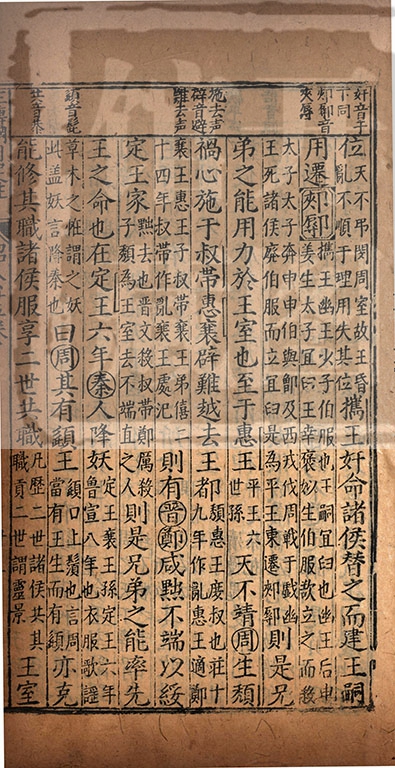 奸音干
下同
郟鄏音
夾辱
施去声
辟音避
難去声
頿音髭
共音恭
位天不弔閔周室故王昏亂不順于理用失其位攜王奸命諸侯替之而建王嗣
用遷郟鄏攜王幽王少子伯服也王嗣宜臼也幽王后申姜生太子宜臼王幸褒姒生伯服欲立之而殺
太子太子奔申申伯與鄫及西戎伐周戰于戲幽王死諸侯廢伯服而立宜臼是為平王東遷郟鄏則是兄
弟之能用力於王室也至于惠王平王六世孫天不靖周生頹
禍心施于叔帶惠襄辟難越去王都頹惠王庶叔也莊十九年作亂惠王適鄭
襄王惠王子叔帶襄王弟僖二十四年叔帶作亂襄王處汜則有晉鄭咸黜不端以綏
定王家黜去也晉文殺叔帶鄭厲殺子頹為王室去不端直之人則是兄弟之能率先
王之命也在定王六年秦人降妖定王襄王孫定王六年魯宣八年也衣服歌謠
草木之怪謂之妖此蓋妖言降秦也曰周其有頿王頿口上鬚也言周當有王生而有頿亦克
能修其職諸侯服享二世共職凡歷二世諸侯共其職貢二世謂靈景王室